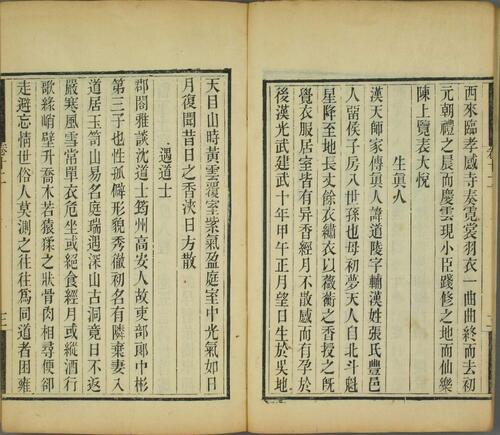 西來臨孝感寺奏霓裳羽衣一曲曲終而去初
元朝禮之晨而慶雲現小臣踐修之地而仙樂
陳上覽表大悅
生真人
漢天師家傳真人諱道陵字輔漢姓張氏豐邑
人留侯子房八世孫也母初夢天人自北斗魁
星降至地長丈餘衣繡衣以薇蘅之香授之旣
覺衣服居室皆有异香經月不散感而有孕於
後漢光武建武十年甲午正月望日生於吳地
天目山時黃雲覆室紫氣盈庭室中光氣如日
月復聞昔日之香浹日方散
遇道士
郡閣雅談沈道士筠州高安人故吏部郞中彬
第三子也性孤僻形貌秀徹初名有隣棄妻入
道居玉笥山易名庭瑞遇深山古洞竟日不返
嚴寒風雪常單衣危坐或絕食經月或縱酒行
歌緣峭壁升喬木若猿猱之狀骨肉相尋便卻
走避忘情世俗人莫測之往往爲同道者困雍